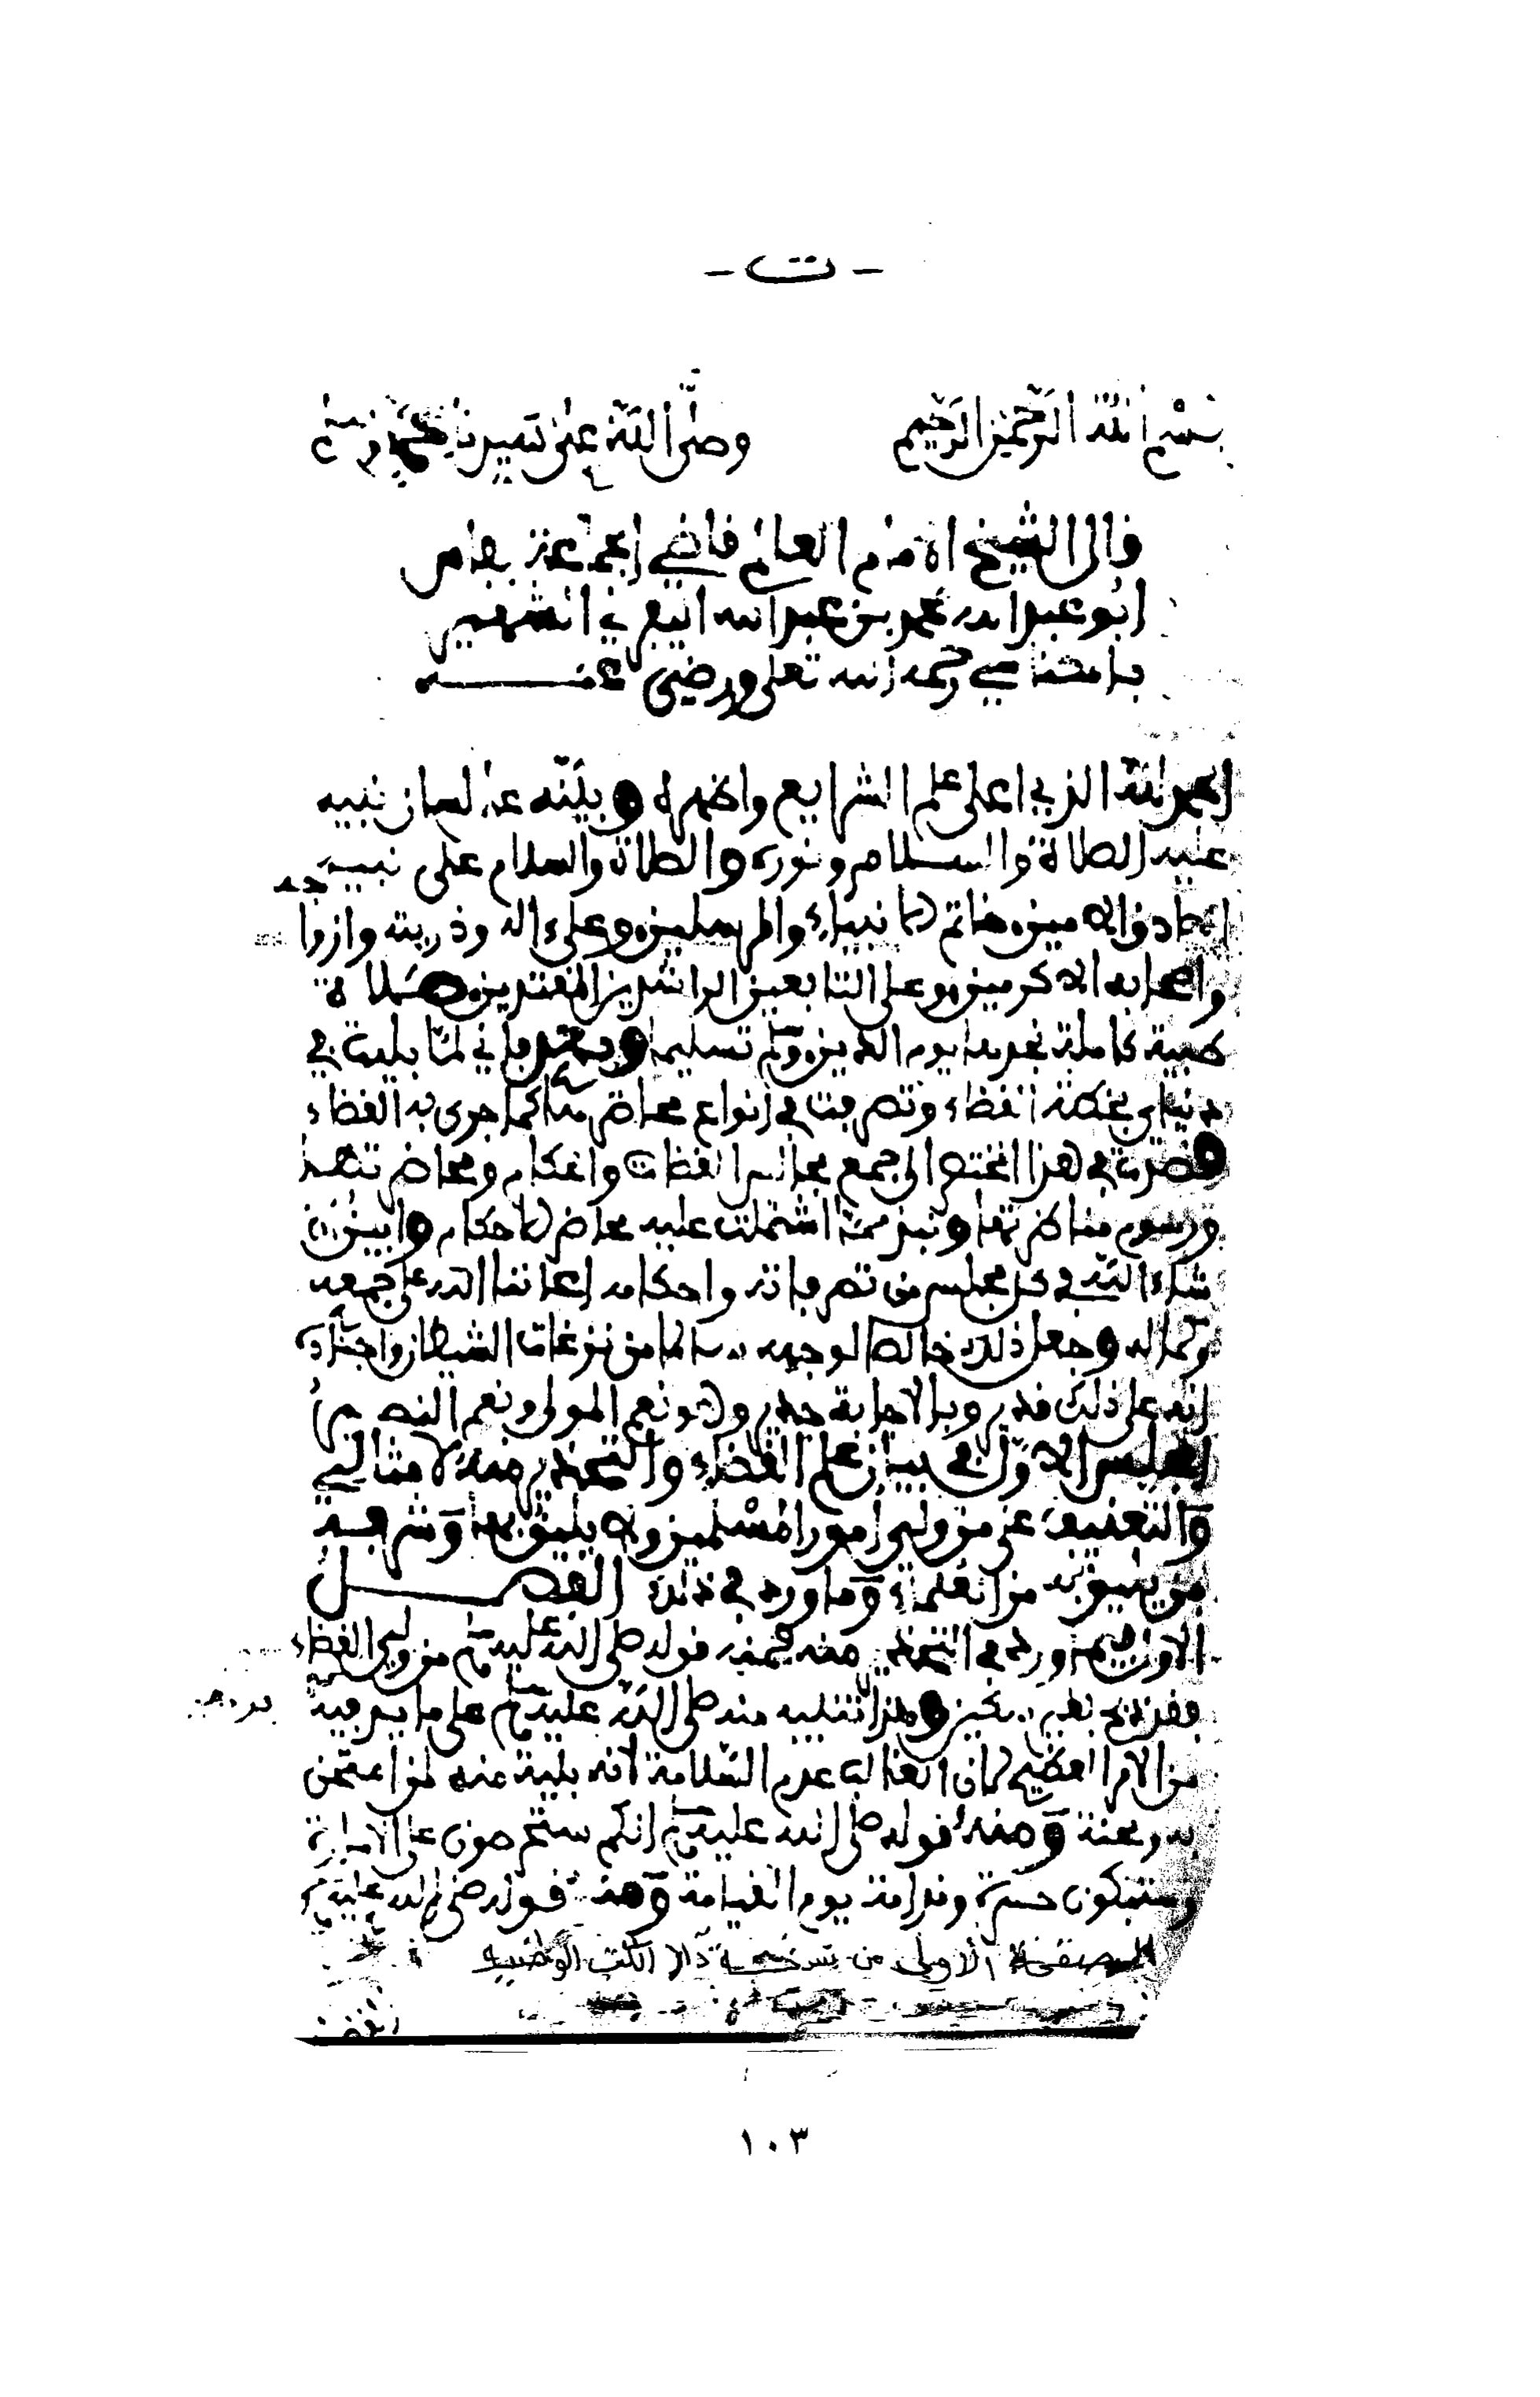 - ت -
بسم الله الرحمن الرحيم وصلى الله على سيدنا محمد وسلم
قال الشيخ الامام العالم قاضي الجماعة بفاس
ابو عبد الله محمد بن عبد الله اليفرني الشهير
بالمكناسي رحمه الله تعلى ورضي عنه
الحمد لله الذي اعلى علم الشرايع واظهره وبينه على لسان نبيه
عليه الصلاة والسلام ونوره والصلاة والسلام على نبيه
الصادق الامين خاتم الانبياء والمرسلين وعلى ءاله وذريته وازواجه
واصحابه الاكرمين وعلى التابعين الراشدين المقتدين صلاة
طيبة كاملة نجدها يوم الدين وسلم تسليما وبعد فاني لما بليت في
دنياي بخطة القضاء وتصرفت في انواع محاضرها كما جرى به القضاء
قصدت في هذا المختصر الى جمع مجالس القضات والحكام ومحاضر
ورسوم ونبذ مما اشتملت عليه محاضر الاحكام وابين ان
شاء الله في كل مجلس من تصرفاته واحكامه اعاننا الله على جمعه
وكماله وجعل ذلك خالصا لوجهه سالما من نزغات الشيطان
انه على ذلك قدير وبالاجابة جدير وهو نعم المولى ونعم النصير
المجلس الاول في بيان علم القضاء والتحذير منه لامثالي
والتعنيف عن من ولي امور المسلمين ولا يليق بها وشرف
من يليق به من العلماء وما ورد في ذلك الفصل
الاول فيما ورد في التحذير منه فمنه قوله صلى الله عليه وسلم من ولي القضاء
فقد ذبح بغير سكين وهذا تنبيه منه صلى الله عليه وسلم على ما يد فيه
من الامر العظيم لان الغالب عدم السلامة لانه بلية لمن امتحن
به ومحنة ومنه قوله صلى الله عليه وسلم انكم ستحرصون على الامارة
وستكون حسرة وندامة يوم القيامة ومنه قوله صلى الله عليه وسلم
الصفحة الاولى من نسخة دار الكتب الوطنية
القضاة
١٠٣